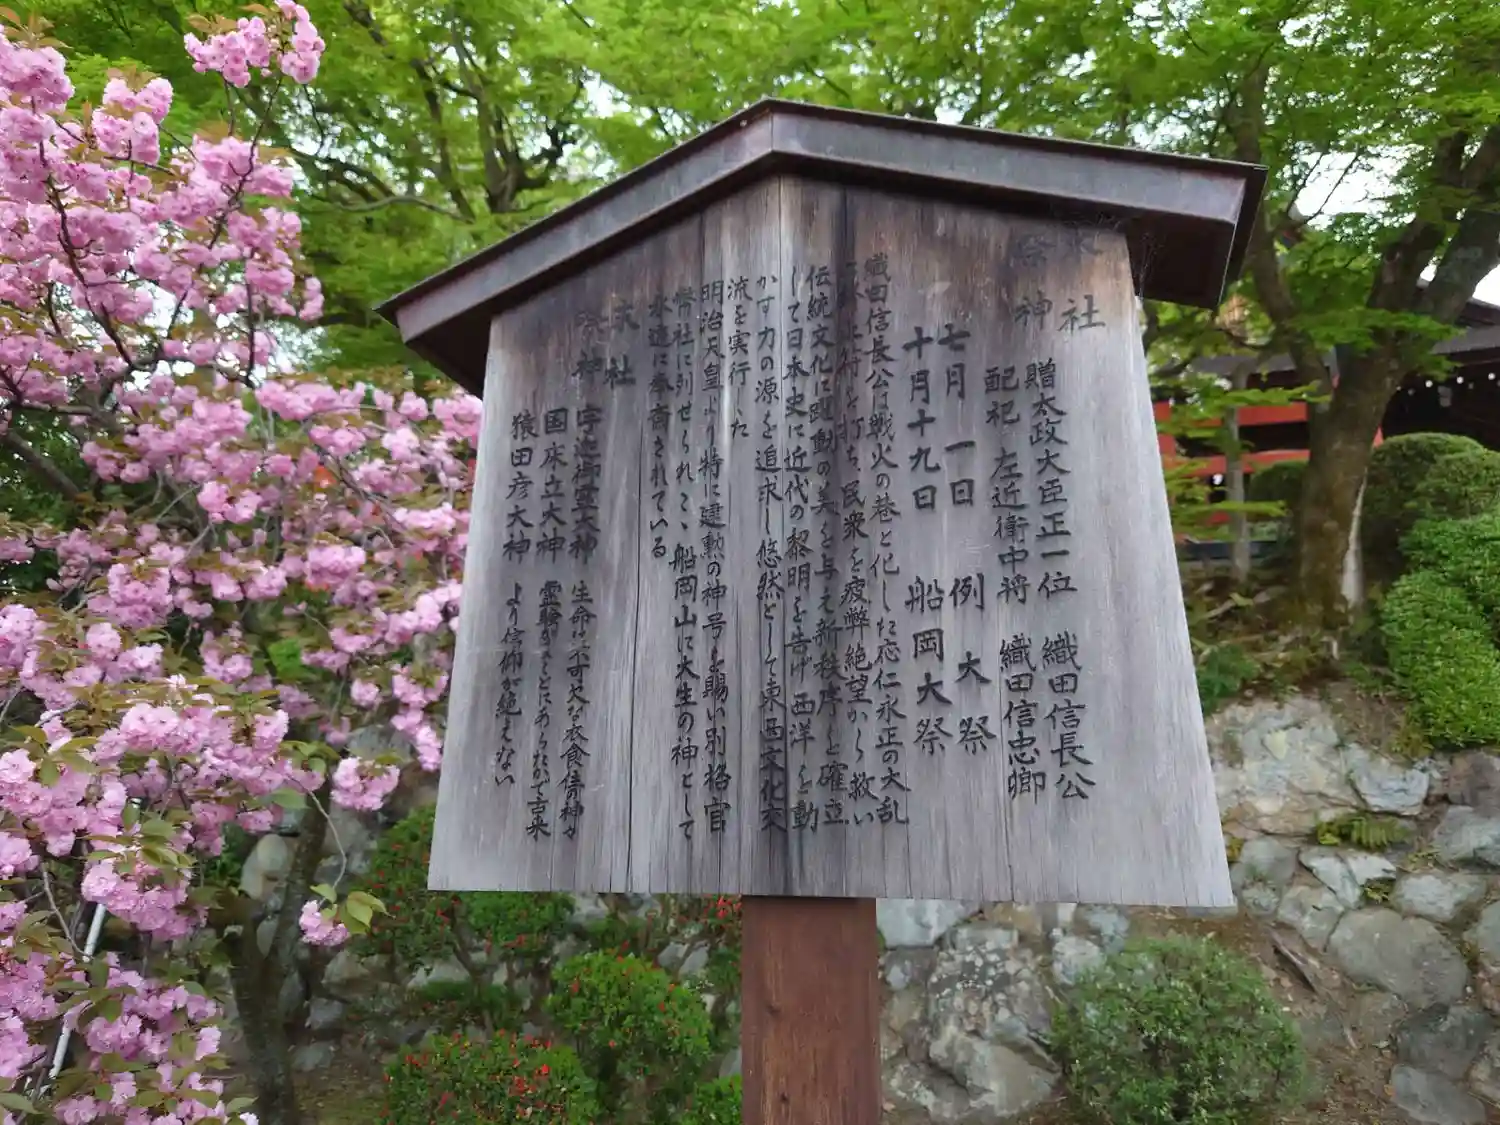 本社
祭神 贈太政大臣正一位 織田信長公
配祀 左近衛中将 織田信忠卿
七月一日 例大祭
十月十九日 船岡大祭
織田信長公は戦火の巷と化した応仁永正の大乱
に終止符を打ち、民衆を疲弊絶望から救い
伝統文化に躍動の美を与え新秩序を確立
して日本史に近代の黎明を告げ西洋を動
かす力の源を追求し悠然として東西文化交
流を実行した
明治天皇より特に建勲の神号を賜い別格官
幣社に列せられ、船岡山に大生の神として
永遠に奉斎されている
末社
祭神 宇迦御霊大神 生命に不可欠な衣食住の神
国床立大神 霊験まことにあらたかで古来
猿田彦大神 より信仰が絶えない